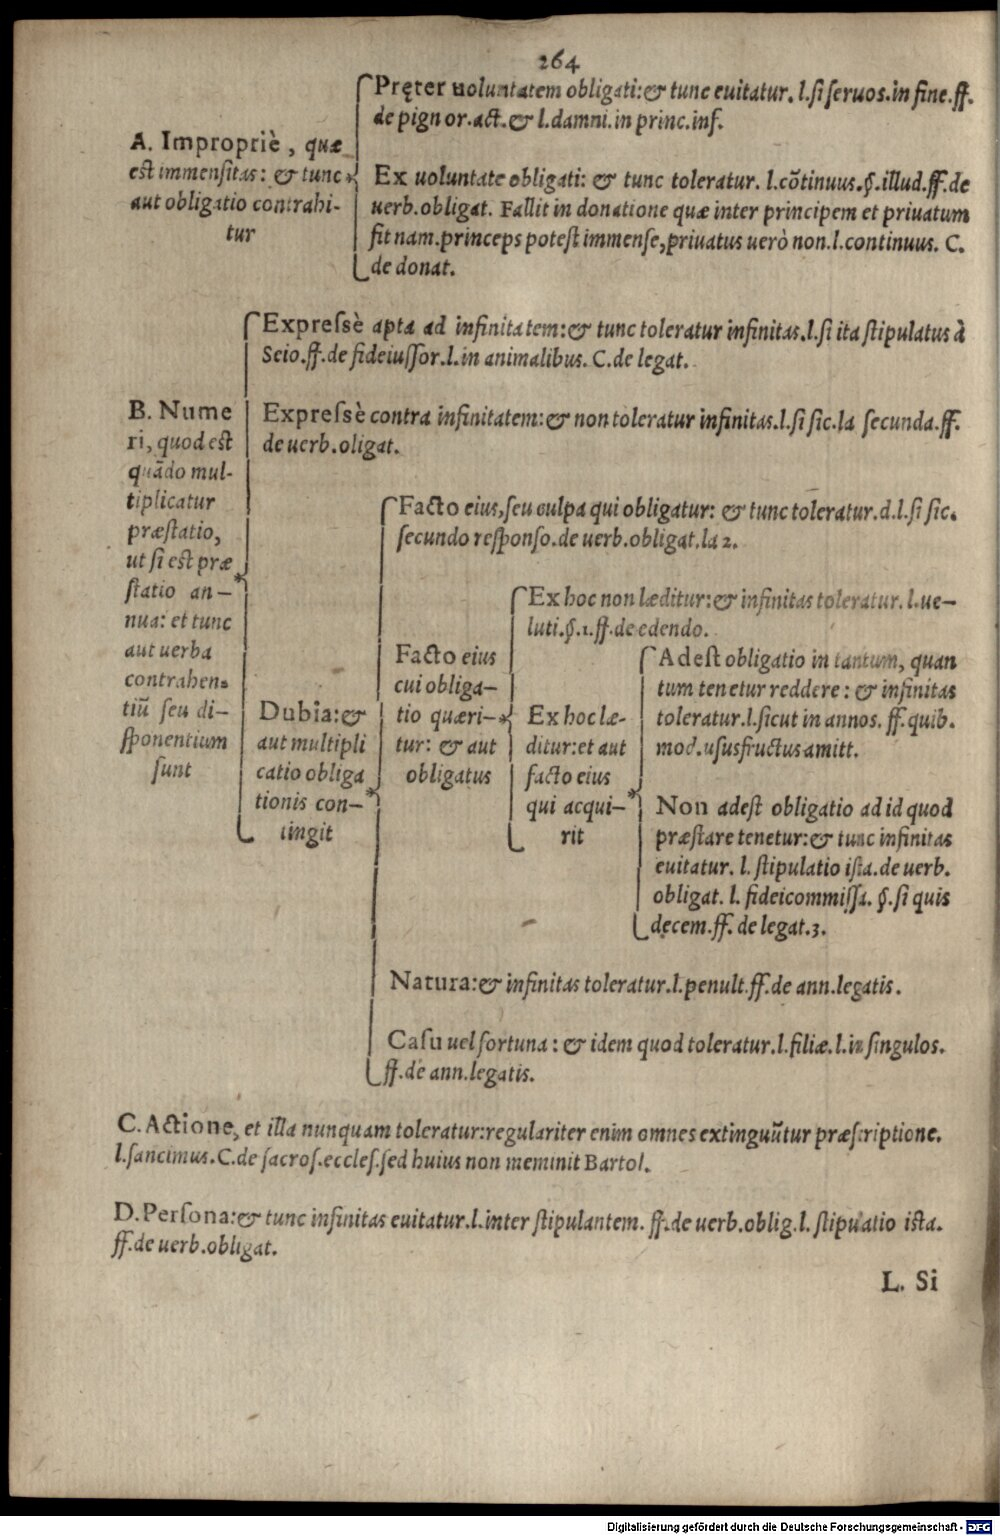 264
A. Impropriè, quæ
est immensitas: & tunc
aut obligatio contrahi-
tur
Pręter uoluntatem obligati:& tunc euitatur. l.si seruos.in fine.ff.
de pignor.act.& l.damni.in princ.inf.
Ex uoluntate obligati: & tunc toleratur. l.cõtinuus.§.illud.ff.de
uerb.obligat. Fallit in donatione quæ inter principem et priuatum
fit nam.princeps potest immense,priuatus uerò non.l.continuus. C.
de donat.
B. Nume
ri, quod est
quãdo mul-
tiplicatur
præstatio,
ut si est præ
statio an-
nua: et tunc
aut uerba
contrahen-
tiũ seu di-
sponentium
sunt
Expressè apta ad infinitatem:& tunc toleratur infinitas.l.si ita stipulatus à
Seio.ff.de fideiussor.l.in animalibus. C.de legat.
Expressè contra infinitatem:& non toleratur infinitas.l.si sic.la secunda.ff.
de uerb.oligat.
Dubia:&
aut multipli
catio obliga
tionis con-
tingit
Facto eius,seu culpa qui obligatur: & tunc toleratur.d.l.si sic.
secundo responso.de uerb.obligat.la 2.
Facto eius
cui obliga-
tio quæri-
tur: & aut
obligatus
Ex hoc non læditur:& infinitas toleratur. l.ue-
luti.§.1.ff.de edendo.
Ex hoc læ-
ditur:et aut
facto eius
qui acqui-
rit
Adest obligatio in tantum, quan
tum tenetur reddere: & infinitas
toleratur.l.sicut in annos. ff.quib.
mod.ususfructus amitt.
Non adest obligatio ad id quod
præstare tenetur:& tunc infinitas
euitatur. l. stipulatio ista.de uerb.
obligat. l. fideicommissa. §.si quis
decem.ff. de legat.3.
Natura:& infinitas toleratur.l.penult.ff.de ann.legatis.
Casu uel fortuna: & idem quod toleratur.l.filiæ.l.in singulos.
ff.de ann.legatis.
C. Actione, et illa nunquam toleratur:regulariter enim omnes extinguũtur præscriptione.
l.sancimus.C.de sacros.eccles.sed huius non meminit Bartol.
D. Persona:& tunc infinitas euitatur.l.inter stipulantem. ff.de uerb.oblig.l. stipuatio ista.
ff.de uerb.obligat.
L. Si
Digitalisierung gefördert durch die Deutsche Forschungsgemeinschaft - DFG